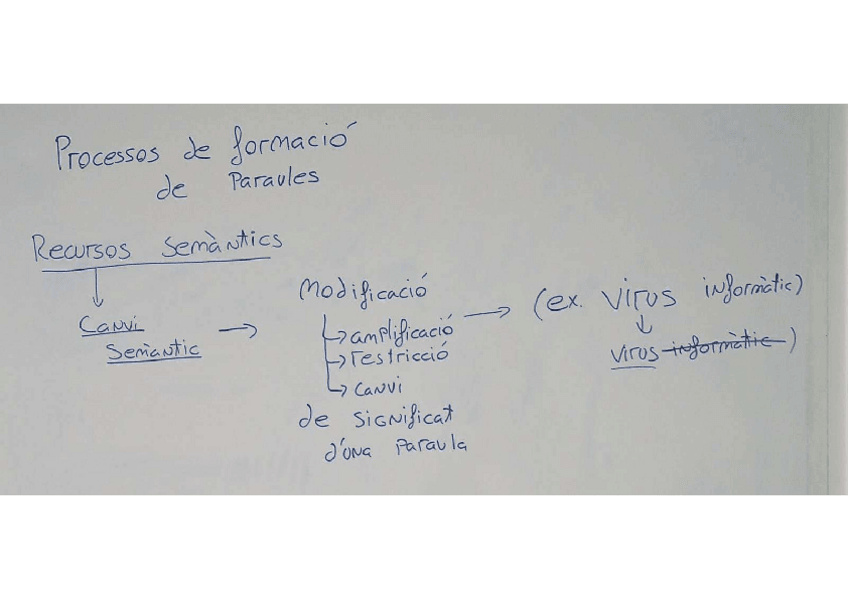 Processos de formació
de Paraules
Recursos Semàntics
Canvi
Semàntic
Modificació
amplificació
restricció
canvi
de significat
d'una Paraula
(ex. Virus informàtic)
Virus informàtic)